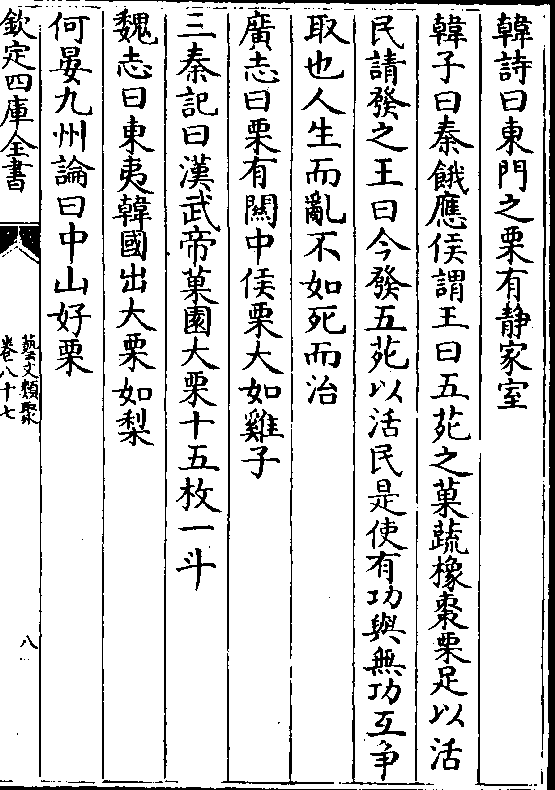 韓詩曰東門之栗有静家室
韓子曰秦餓應侯謂王曰五苑之菓蔬橡棗栗足以活
民請發之王曰今發五苑以活民是使有功與無功互争
取也人生而亂不如死而治
廣志曰栗有關中侯栗大如雞子
三秦記曰漢武帝菓園大栗十五枚一斗
魏志曰東夷韓國出大栗如梨
何晏九州論曰中山好栗
欽定四庫全書
藝文類聚
卷八十七
八